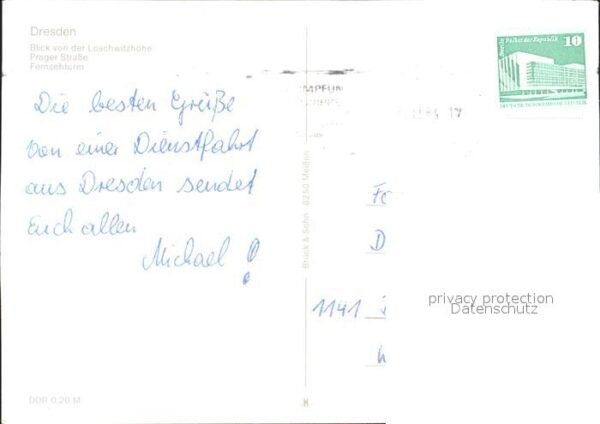 Dresden
Blick von der Loschwitzhöhe
Prager Straße
Fernsehturm
Die besten Grüße
von einer Dienstfahrt
aus Dresden sendet
Euch allen
Michael !
DDR 0,20 M
Brück & Sohn 8250 Meißen
Berlin Palast der Republik
10
DEUTSCHE DEMOKRATISCHE REPUBLIK
MPFUN
84 17
Fe
D
1141
privacy protection
Datenschutz